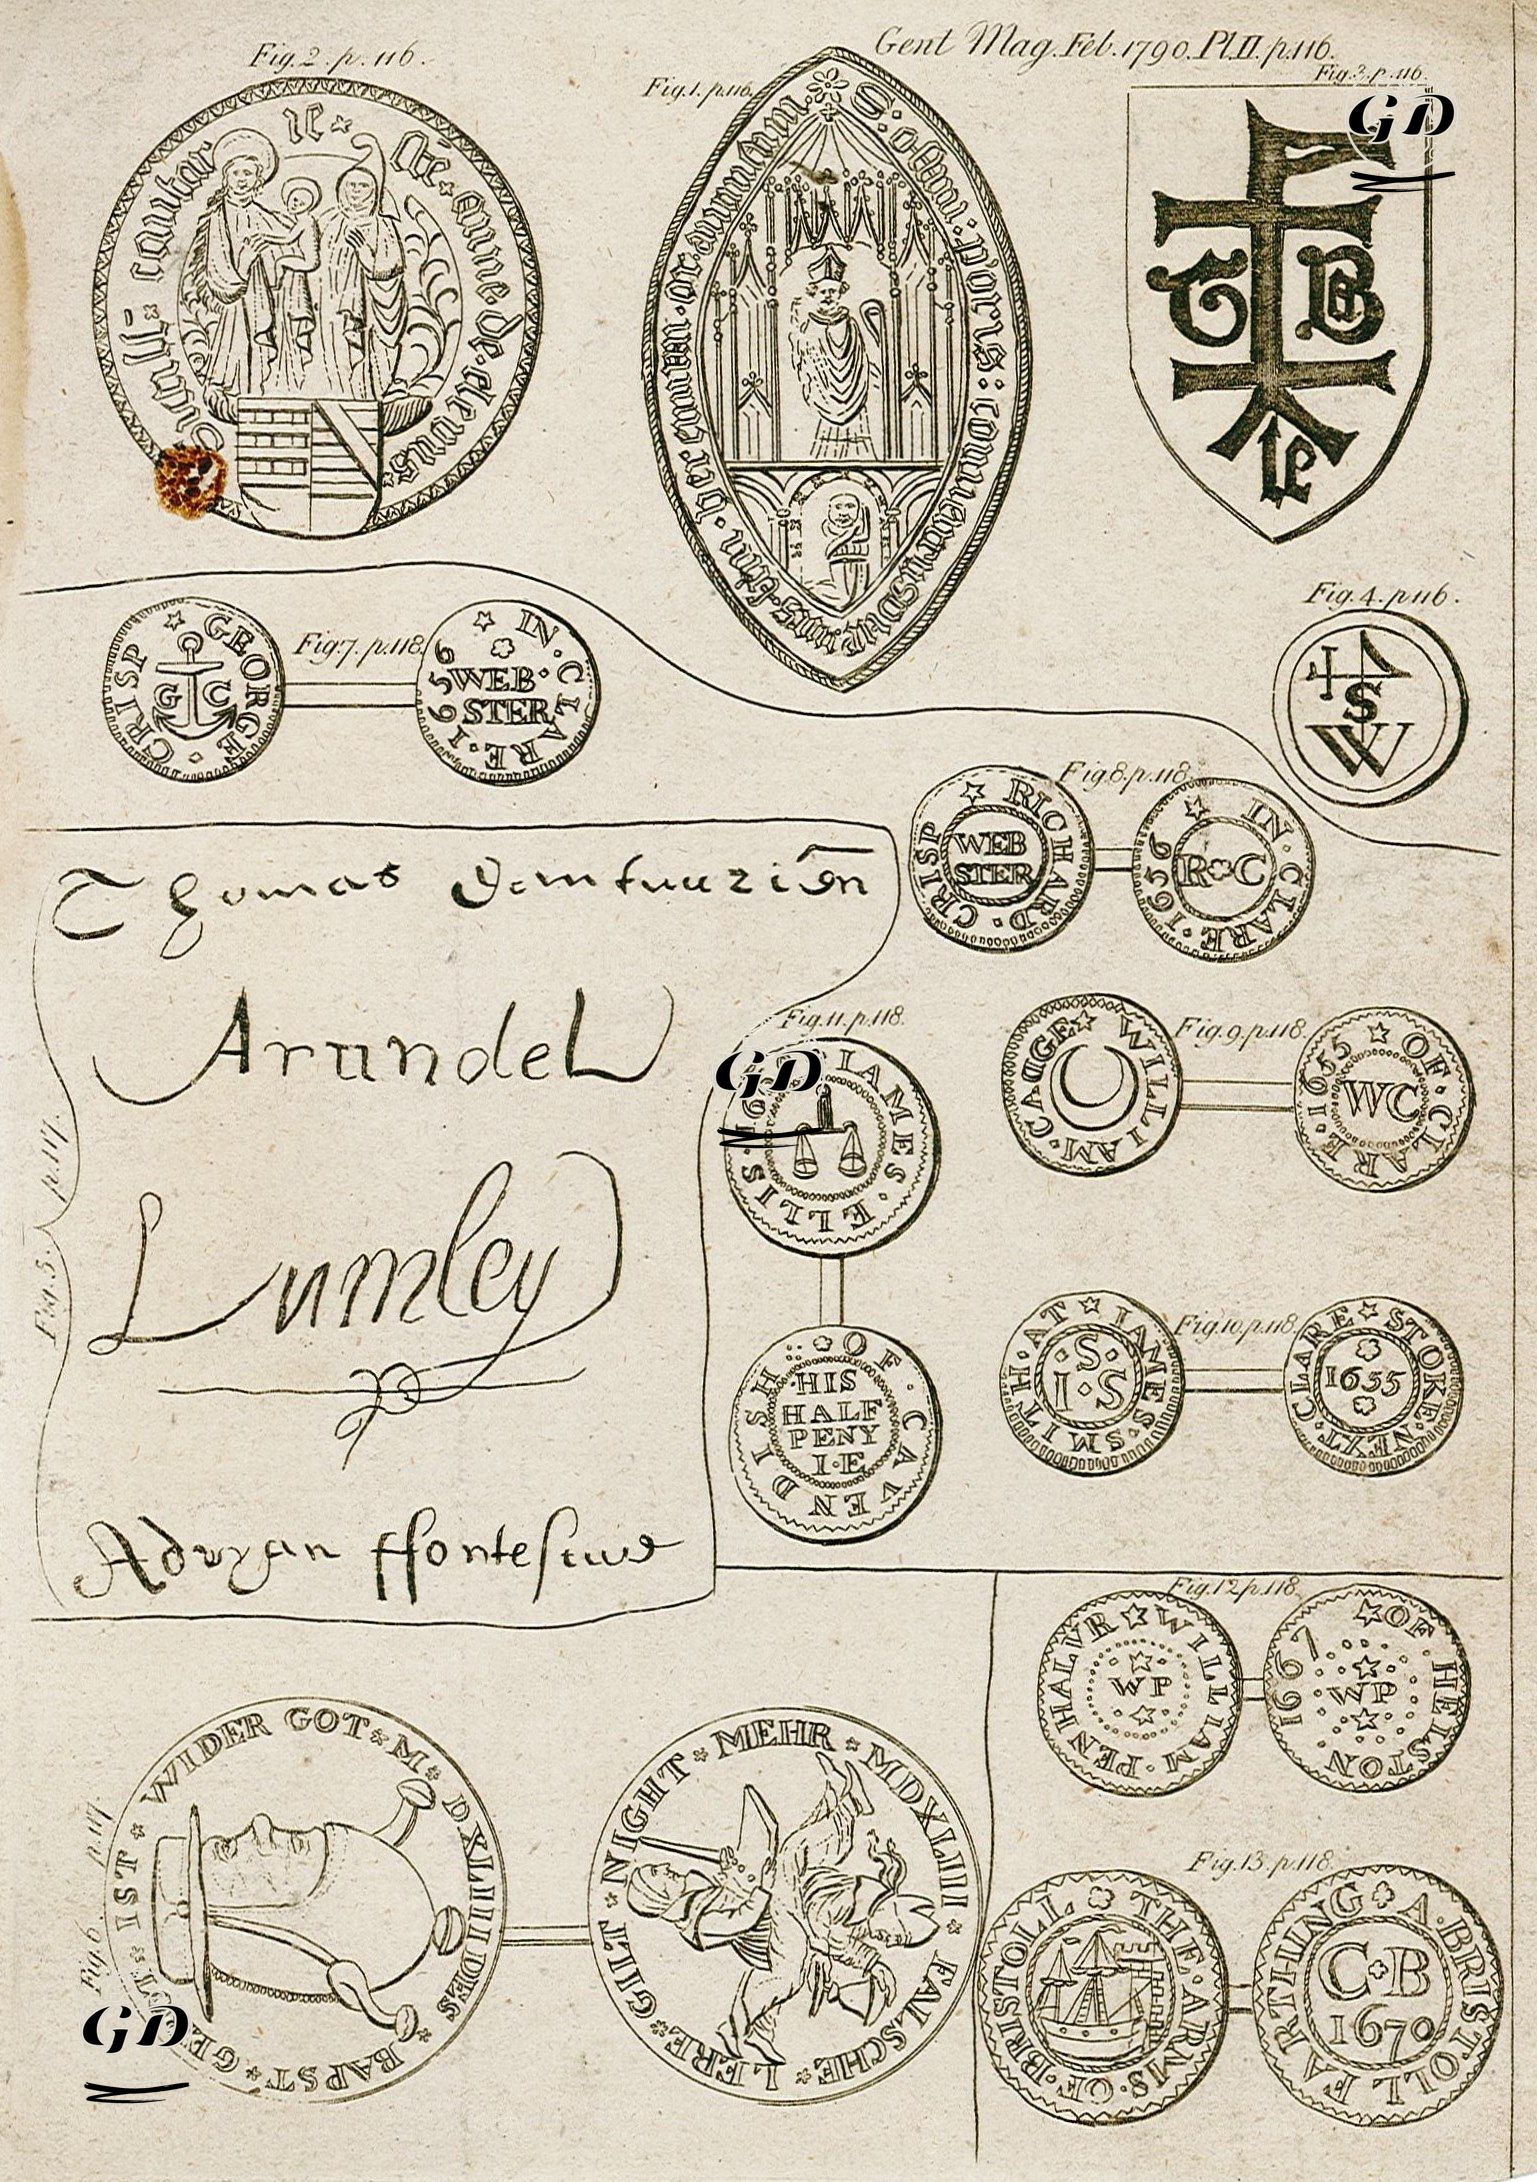 Gent Mag. Feb. 1790. Pl. II. p. 116.
Fig. 2. p. 116.
Fig. 1. p. 116.
Fig. 3. p. 116.
GD
te
anne · de · clevis
Fig. 4. p. 116.
S
W
Fig. 7. p. 118.
GEORGE · CRISP
G C
IN · CLARE · 1656
WEB·
STER
Fig. 8. p. 118.
RICHARD · CRISP
WEB
STER
IN · CLARE · 1656
R C
Fig. 5. p. 117.
Thomas
Arundel
Lumley
Adryan ffontescue
Fig. 9. p. 118.
WILLIAM · CAGGE
OF · CLARE · 1655
WC
Fig. 11. p. 118.
GD
IAMES · ELLIS ·
OF · CAVENDISH
HIS
HALF
PENY
I·E
Fig. 10. p. 118.
IAMES · SMITH · AT
·S·
I·S
STOKE · NEXT · CLARE
1655
Fig. 12. p. 118.
WILLIAM · PENHALVR
WP
OF HELSTON 1667
WP
Fig. 6. p. 117.
DES BAPST · GE IST WIDER GOT M · DXLIIII
GD
FALSCHE LERE GILT NIGHT MEHR MDXLIIII
Fig. 13. p. 118.
THE · ARMS · OF · BRISTOLL
A · BRISTOLL FARTHING
C B
1670